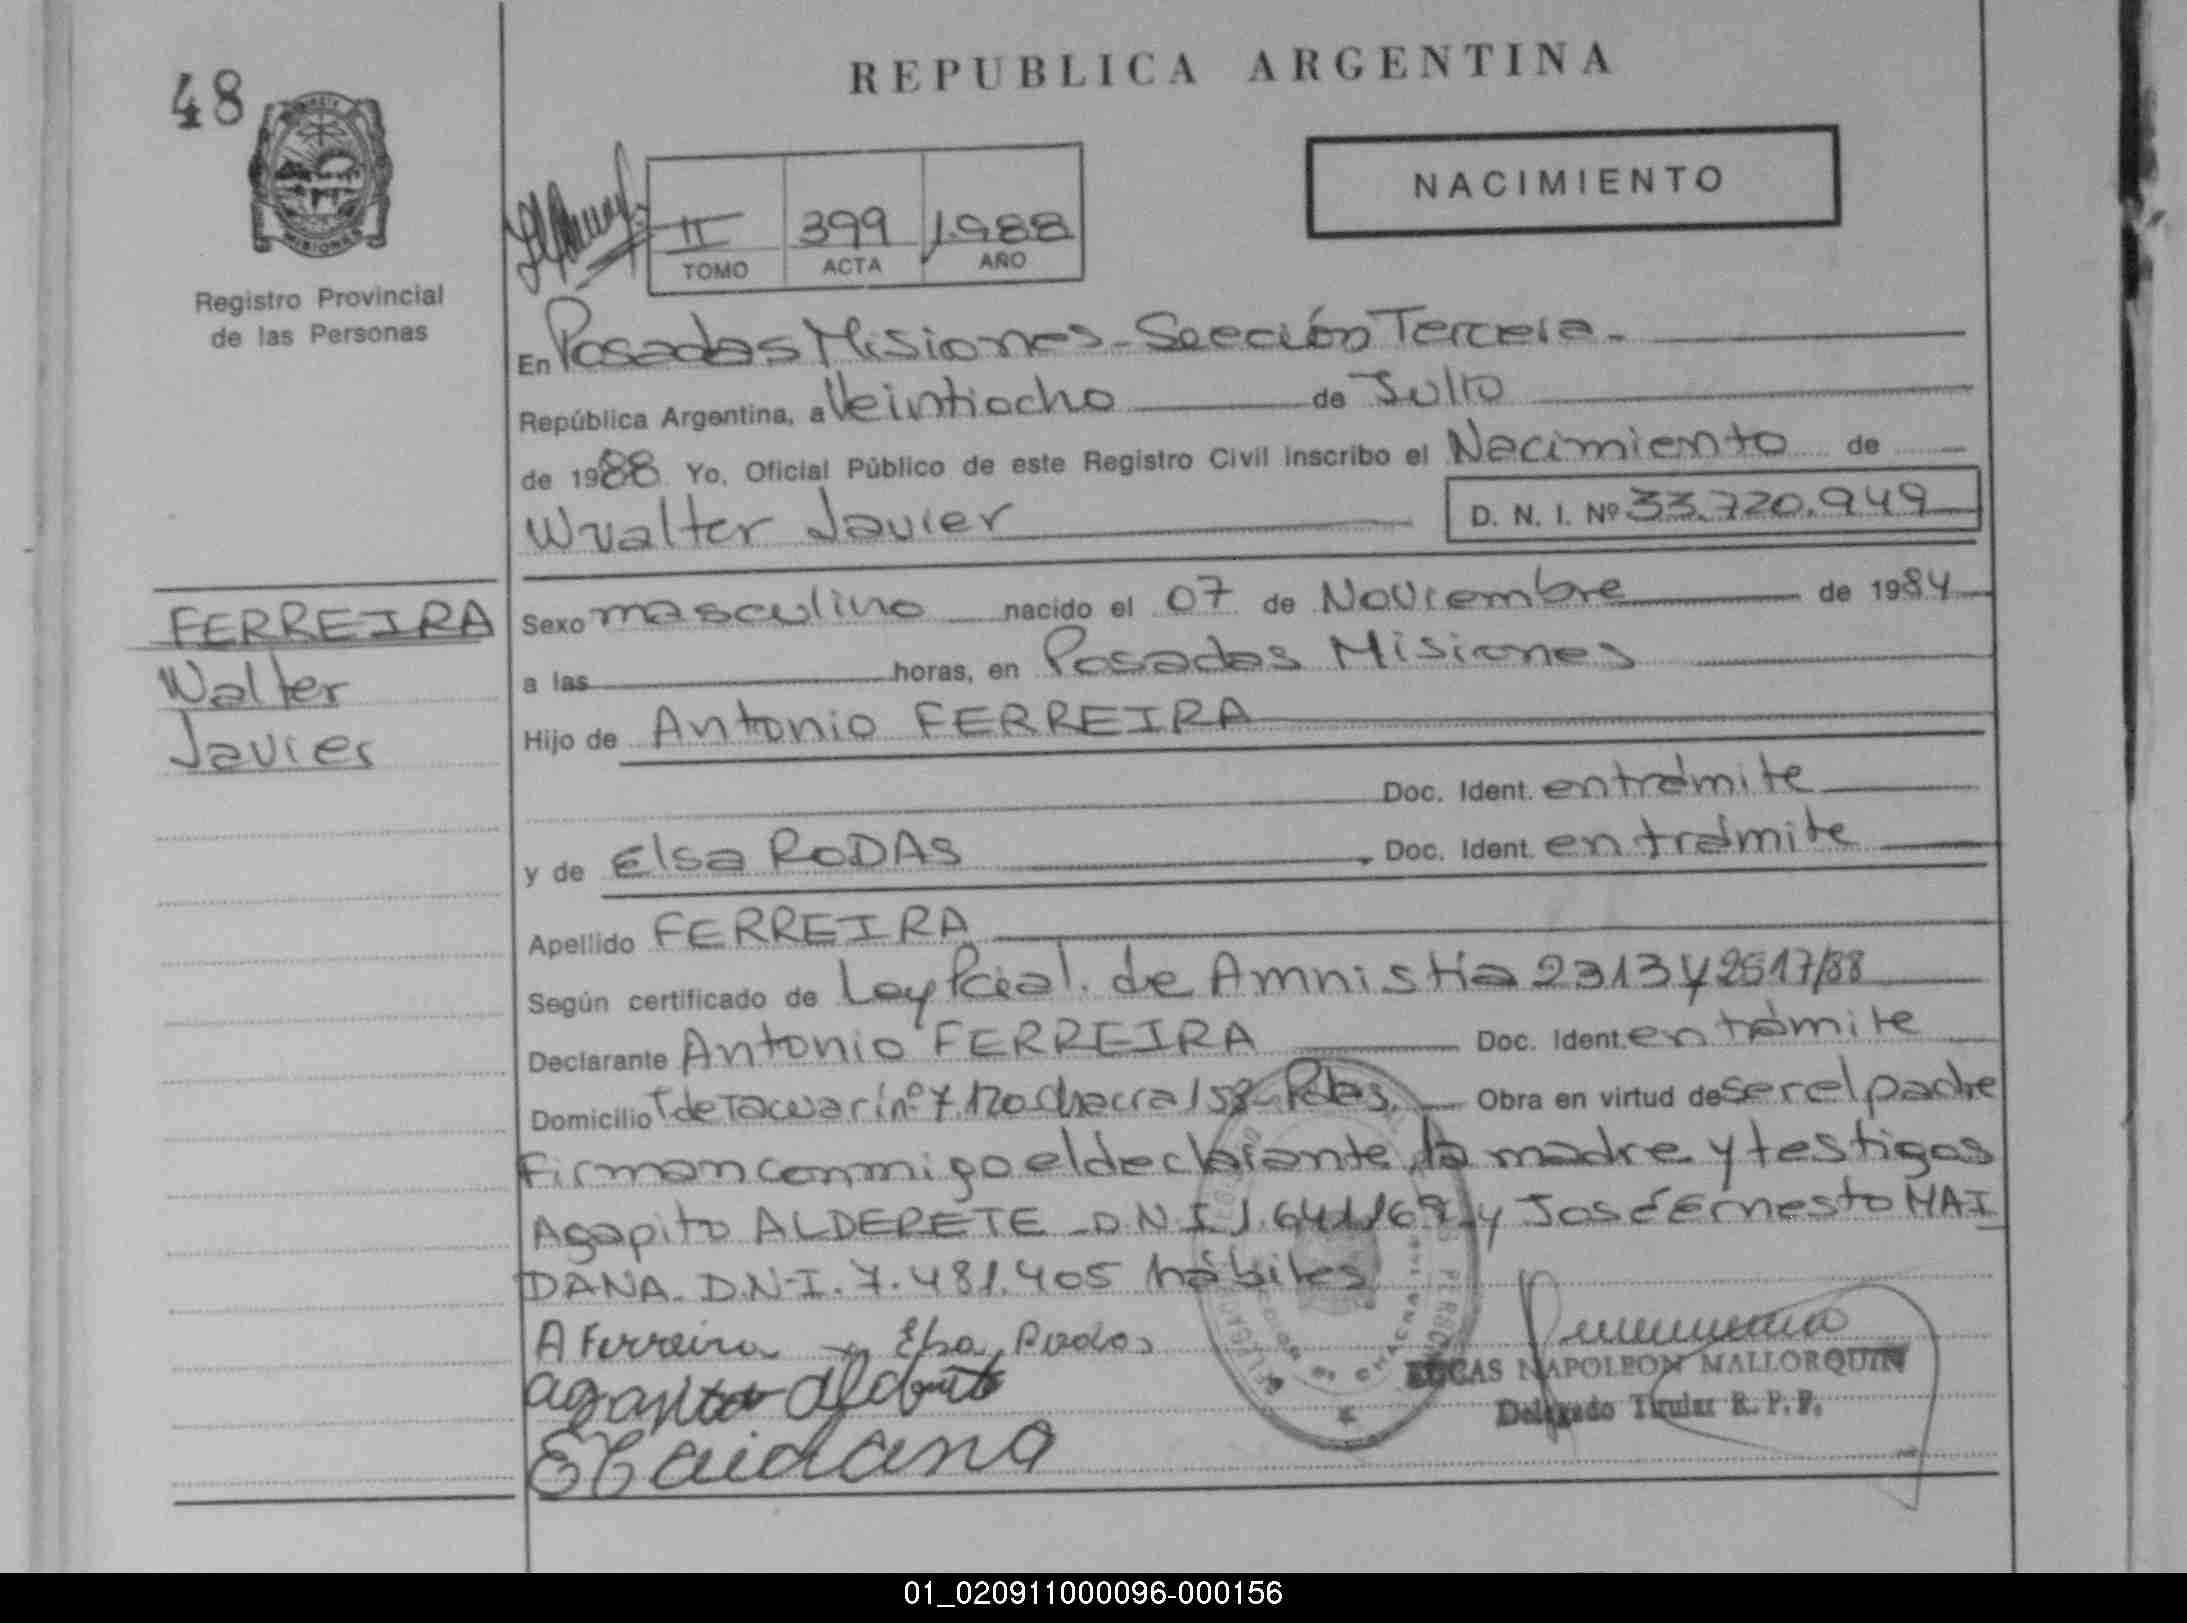 REPUBLICA ARGENTINA
48
NACIMIENTO
II 399 1.988
TOMO ACTA AÑO
Registro Provincial
de las Personas
MISIONES
En Posadas Misiones - Sección Tercera -
República Argentina, a Veintiocho de Julio
de 1988 Yo, Oficial Público de este Registro Civil inscribo el Nacimiento de
Wualter Javier D. N. I. Nº 33.720.949
FERREIRA
Walter
Javier
Sexo masculino nacido el 07 de Noviembre de 1984
a las horas, en Posadas Misiones
Hijo de Antonio FERREIRA
Doc. Ident. en trámite
y de Elsa RODAS Doc. Ident. en trámite
Apellido FERREIRA
Según certificado de Ley Pcial. de Amnistia 2313 y 2517/88
Declarante Antonio FERREIRA Doc. Ident. en trámite
Domicilio T de Tacuari nº 7.120 chacra 158 - Pdas. Obra en virtud de ser el padre
Firman conmigo el declarante, la madre y testigos
Agapito ALDERETE - D.N.I. 1.641.169 y José Ernesto MAI
DANA - D.N.I. 7.481.405 hábiles
A Ferreira Elsa Rodas
agapito alderete
E Maidana
LUCAS NAPOLEON MALLORQUIN
Delegado Titular R. P. P.
01_020911000096-000156